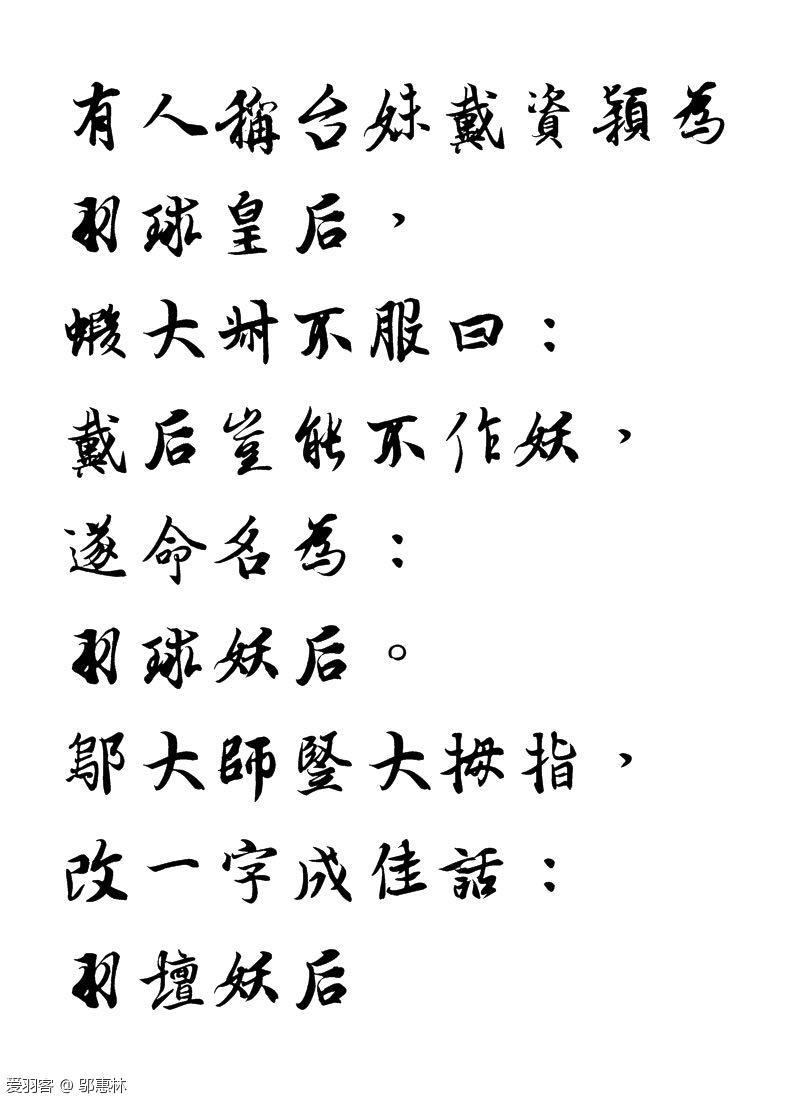 有人稱台妹戴資穎為
羽球皇后，
蝦大州不服曰：
戴后豈能不作妖，
遂命名為：
羽球妖后。
鄔大師豎大拇指，
改一字成佳話：
羽壇妖后
爱羽客 @ 邬惠林